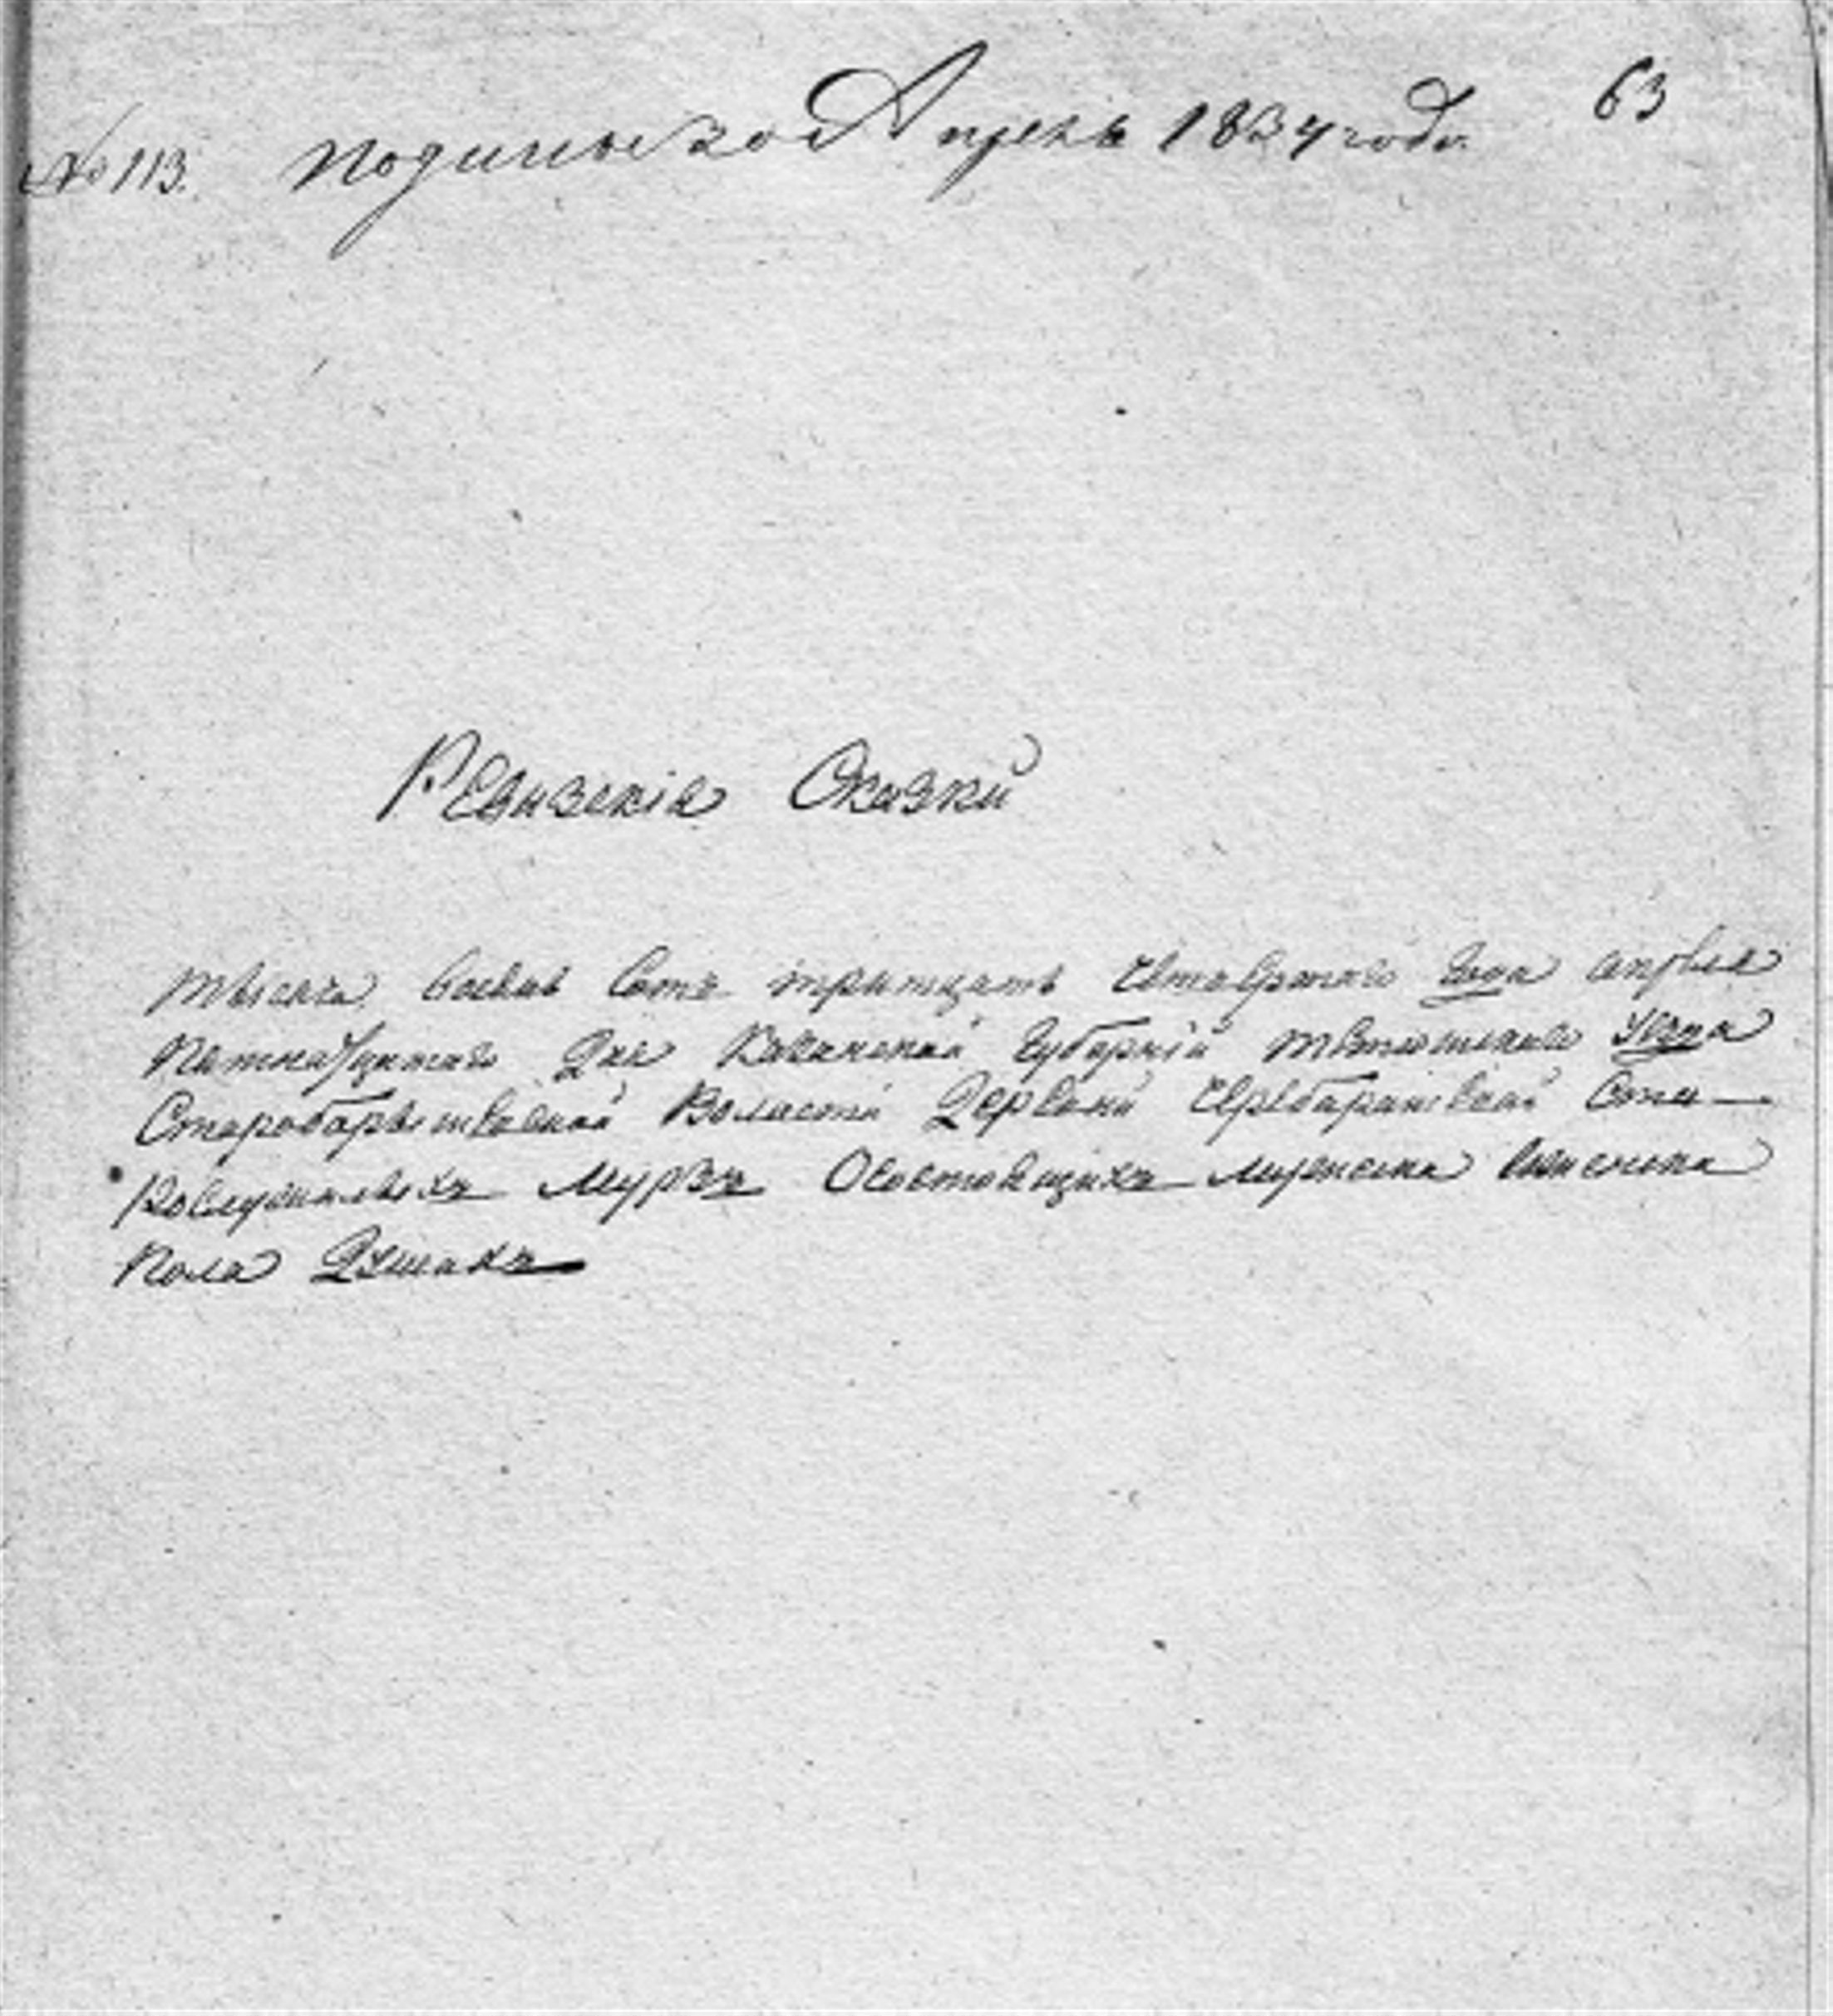 № 113. Подины 30е Апрель 1834 года. 63
Ревизскія Сказки
тысяча восемь Сотъ тритцать Четвертого Года апреля
Пятнатцатого Дня Казанской Губерніи тетюшского Уезда
Старобарышевской Волости Деревни Чербарашевой Ста
Рослужилыхъ Мурзъ Осостоящихъ мужеска
Пола Душахъ